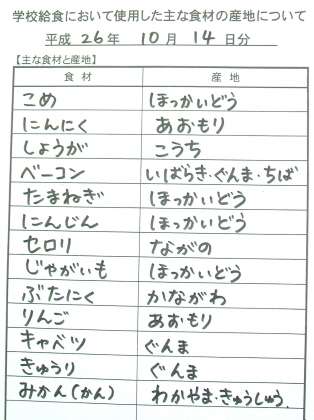 学校給食において使用した主な食材の産地について
平成 26 年 10 月 14 日分
【主な食材と産地】
食材 産地
こめ ほっかいどう
にんにく あおもり
しょうが こうち
ベーコン いばらき・ぐんま・ちば
たまねぎ ほっかいどう
にんじん ほっかいどう
セロリ ながの
じゃがいも ほっかいどう
ぶたにく かながわ
りんご あおもり
キャベツ ぐんま
きゅうり ぐんま
みかん(かん) わかやま・きゅうしゅう